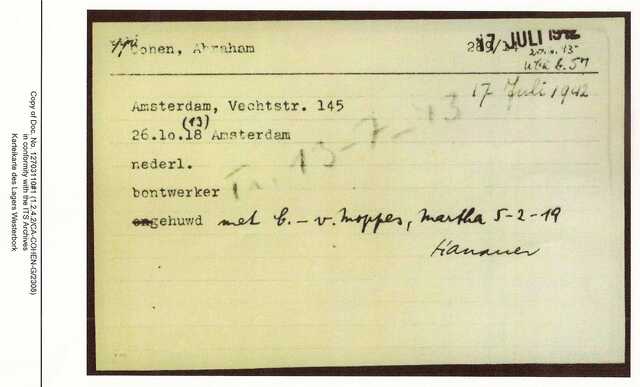 Conen, Abraham 289/34
17 JULI 1942
17 Juli 1942
Amsterdam, Vechtstr. 145
(13)
26.10.18 Amsterdam
Tr. 13-7-13
nederl.
bontwerker
ongehuwd met C. - v. Moppes, Martha 5-2-19
Hanauer
Copy of Doc. No. 12703110#1 (1.2.4.2/CA-COHEN-G/2308)
in conformity with the ITS Archives
Karteikarte des Lagers Westerbork